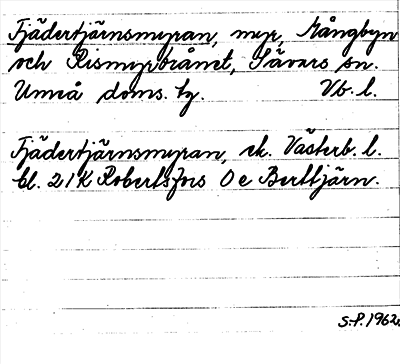 Fjädertjärnsmyran, myr, Mångbyn
och Rismyrbrånet, Sävars sn.
Umeå doms. hg. Vb. l.
Fjädertjärnsmyran, ek. Västerb. l.
bl. 21K Robertsfors 0 e Berttjärn.
S.P. 1962.